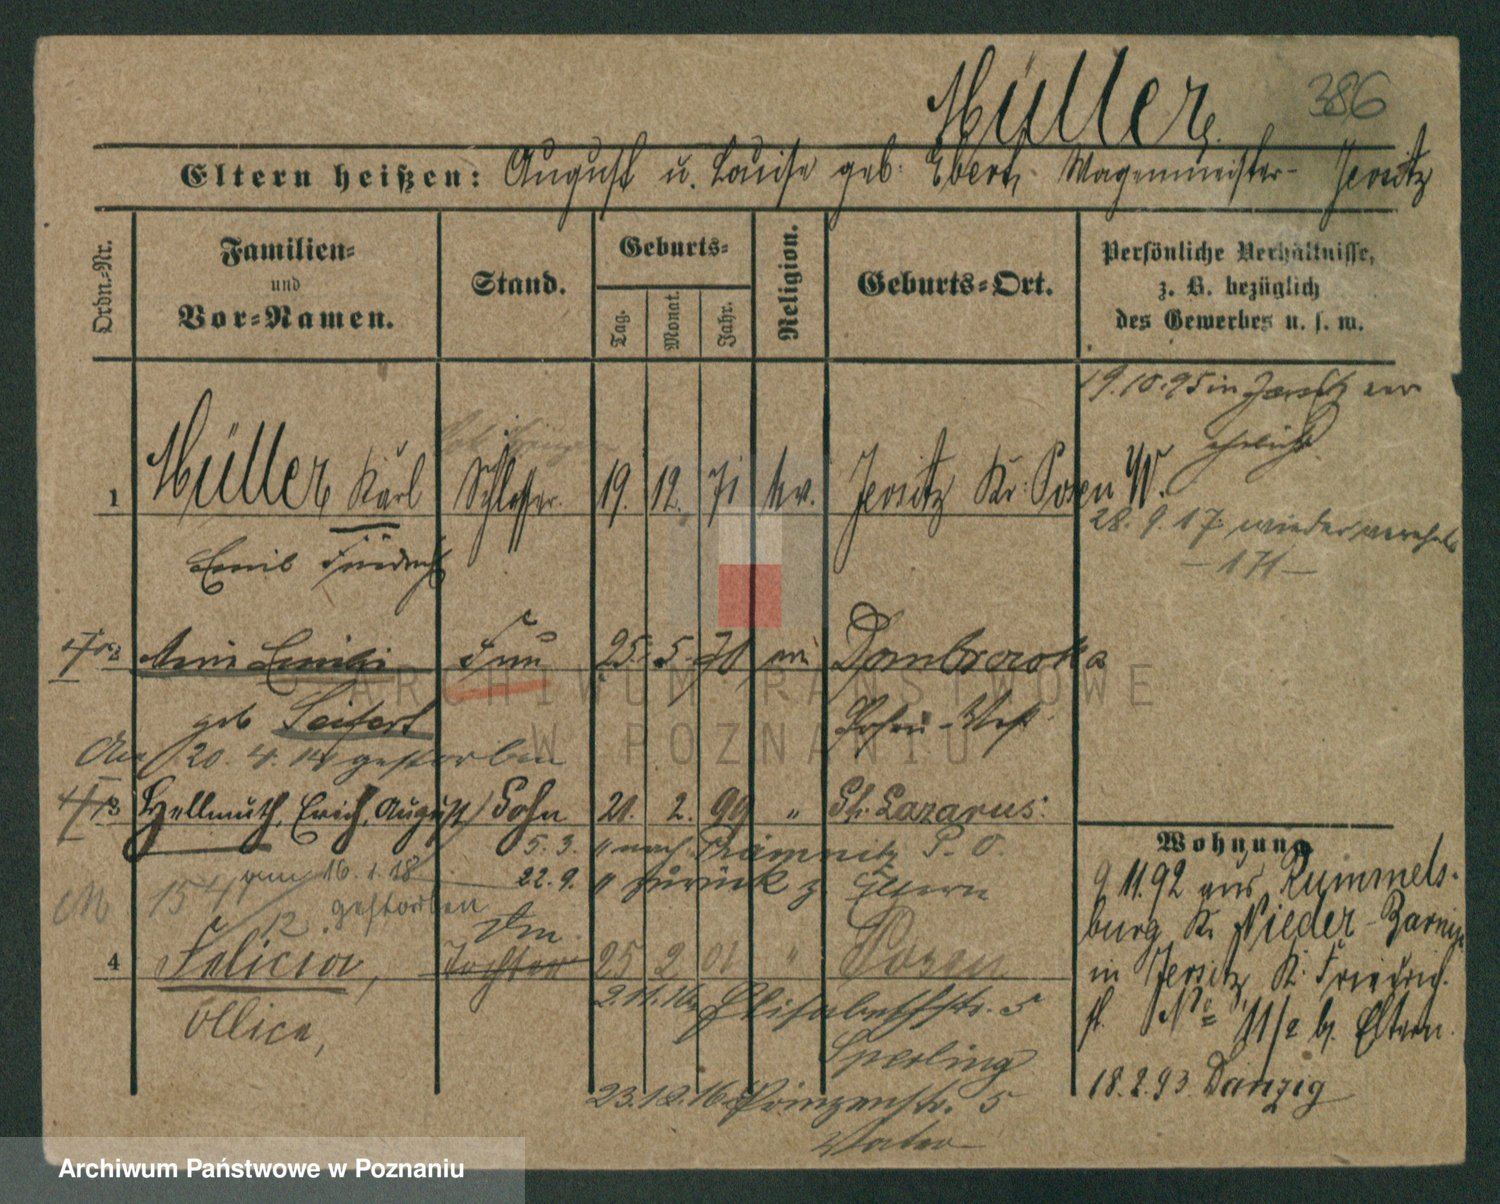 Müller.
386
Eltern heißen: August u. Louise geb. Ebert, Wagenmeister- Jersitz
Ordn.-Nr.
Familien-
und
Vor-Namen.
Stand.
Geburts-
Tag.
Monat.
Jahr.
Religion.
Geburts-Ort.
Persönliche Verhältnisse,
z. B. bezüglich
des Gewerbes u. s. w.
19.10.95 in Jersitz ver
ehelicht.
1 Müller Karl Schlosser. 19. 12. 71 ev. Jersitz Kr. Posen W.
Emil Friedrich
28. 9. 17 wieder verehel.
- 171 -
Frau 25. 5. 70 ev Dombrowka
geb Seifert Posen-West
20. 4. 14 gestorben
Hellmuth, Erich, August Sohn 21. 2. 99 " St. Lazarus.
5. 3. " nach P. O.
am 16. 1. 18 22. 9. " zurück z. Eltern
gestorben
154
12
4 Felicia, Tochter 25 2 01 " Posen
Allice,
2.11.16 Elisabethstr. 5
Sperling
23.12.16 Prinzenstr. 5
Vater
Wohnung
9.11.92 aus Rummels-
burg Kr. Nieder-Barnim
in Jersitz, Kr. Friedrich-
st. No 11/2 b. Eltern.
18.2.93 Danzig
ARCHIWUM PAŃSTWOWE
W POZNANIU
Archiwum Państwowe w Poznaniu